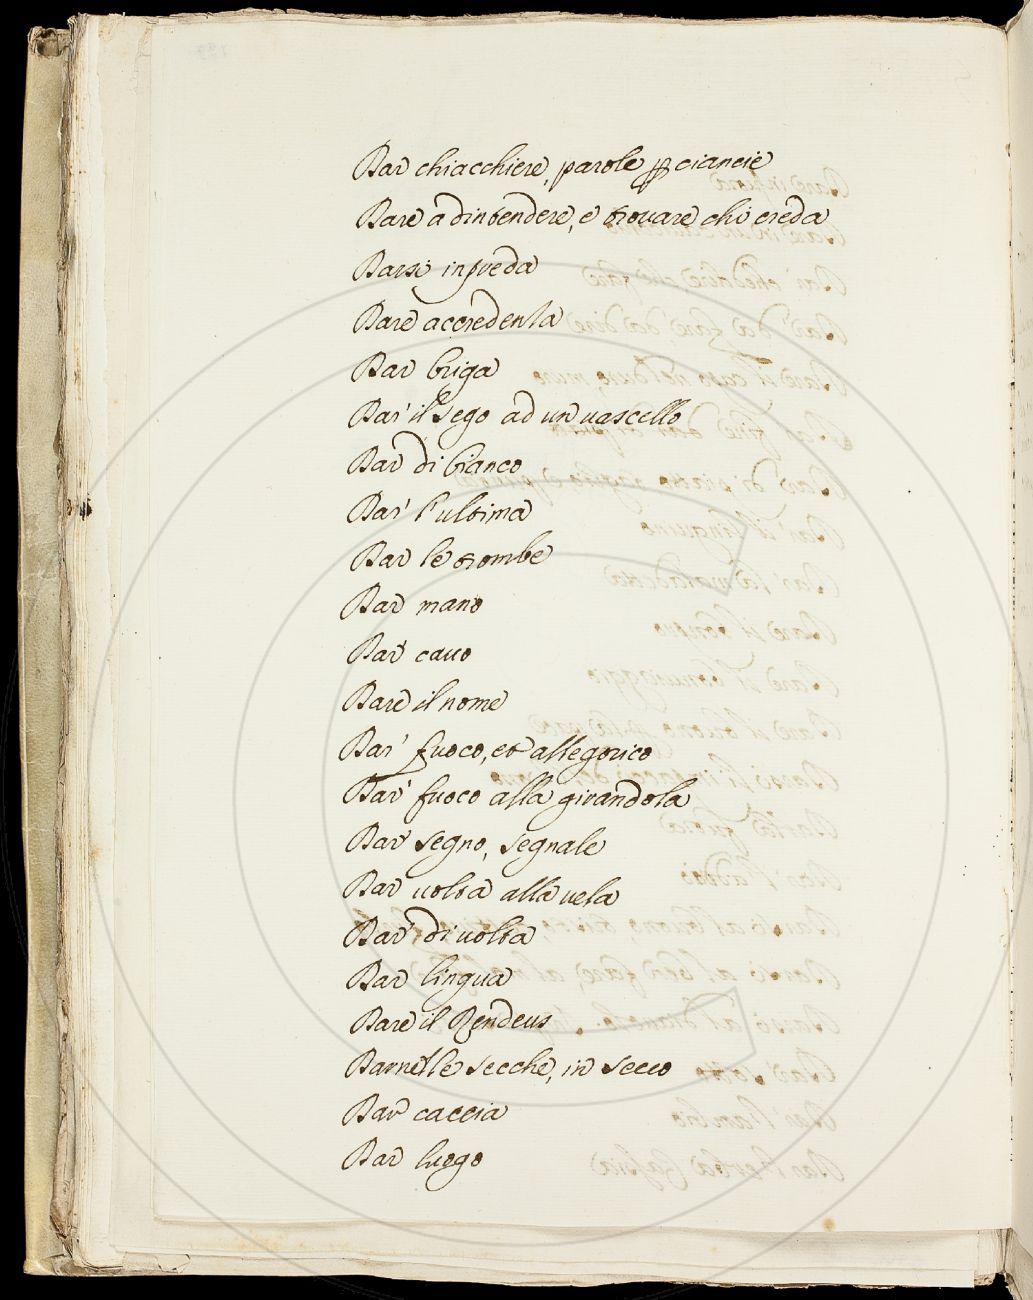 Dar chiacchiere, parole p ciancie
Dare ad intendere, e trovare chi creda
Darsi in preda
Dare accredenza
Dar briga
Dar' il sego ad un vascello
Dar di bianco
Dar' l'ultima
Dar le trombe
Dar mano
Dar cauo
Dare il nome
Dar' fuoco, et allegorico
Dar' fuoco alla girandola
Dar segno, segnale
Dar uolta alla uela
Dar di uolta
Dar lingua
Dare il Rendeus
Dar nelle secche, in secco
Dar caccia
Dar luogo